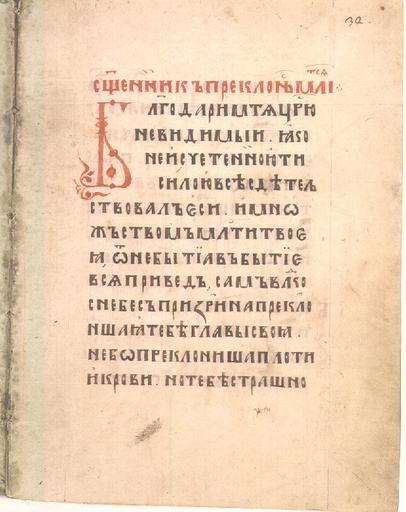 32
сщ҃енникъ преклонь мл҃і тсѧ
Блг҃одаримтѧ цр҃ю
невидимыи. ꙗко
неисчетенноюти
силоювсѣсъдѣтел
ствовалъеси. имнѡ
жьствомъмл҃титвоеѧ
ѿнебытїавъбытїе
всѧприведъ, самъвлⷣко
снебесъпризринапрекло
ншаѧтебѣглавысвоѧ.
небѡпреклонишаплоти
икрови. нотебѣстрашно